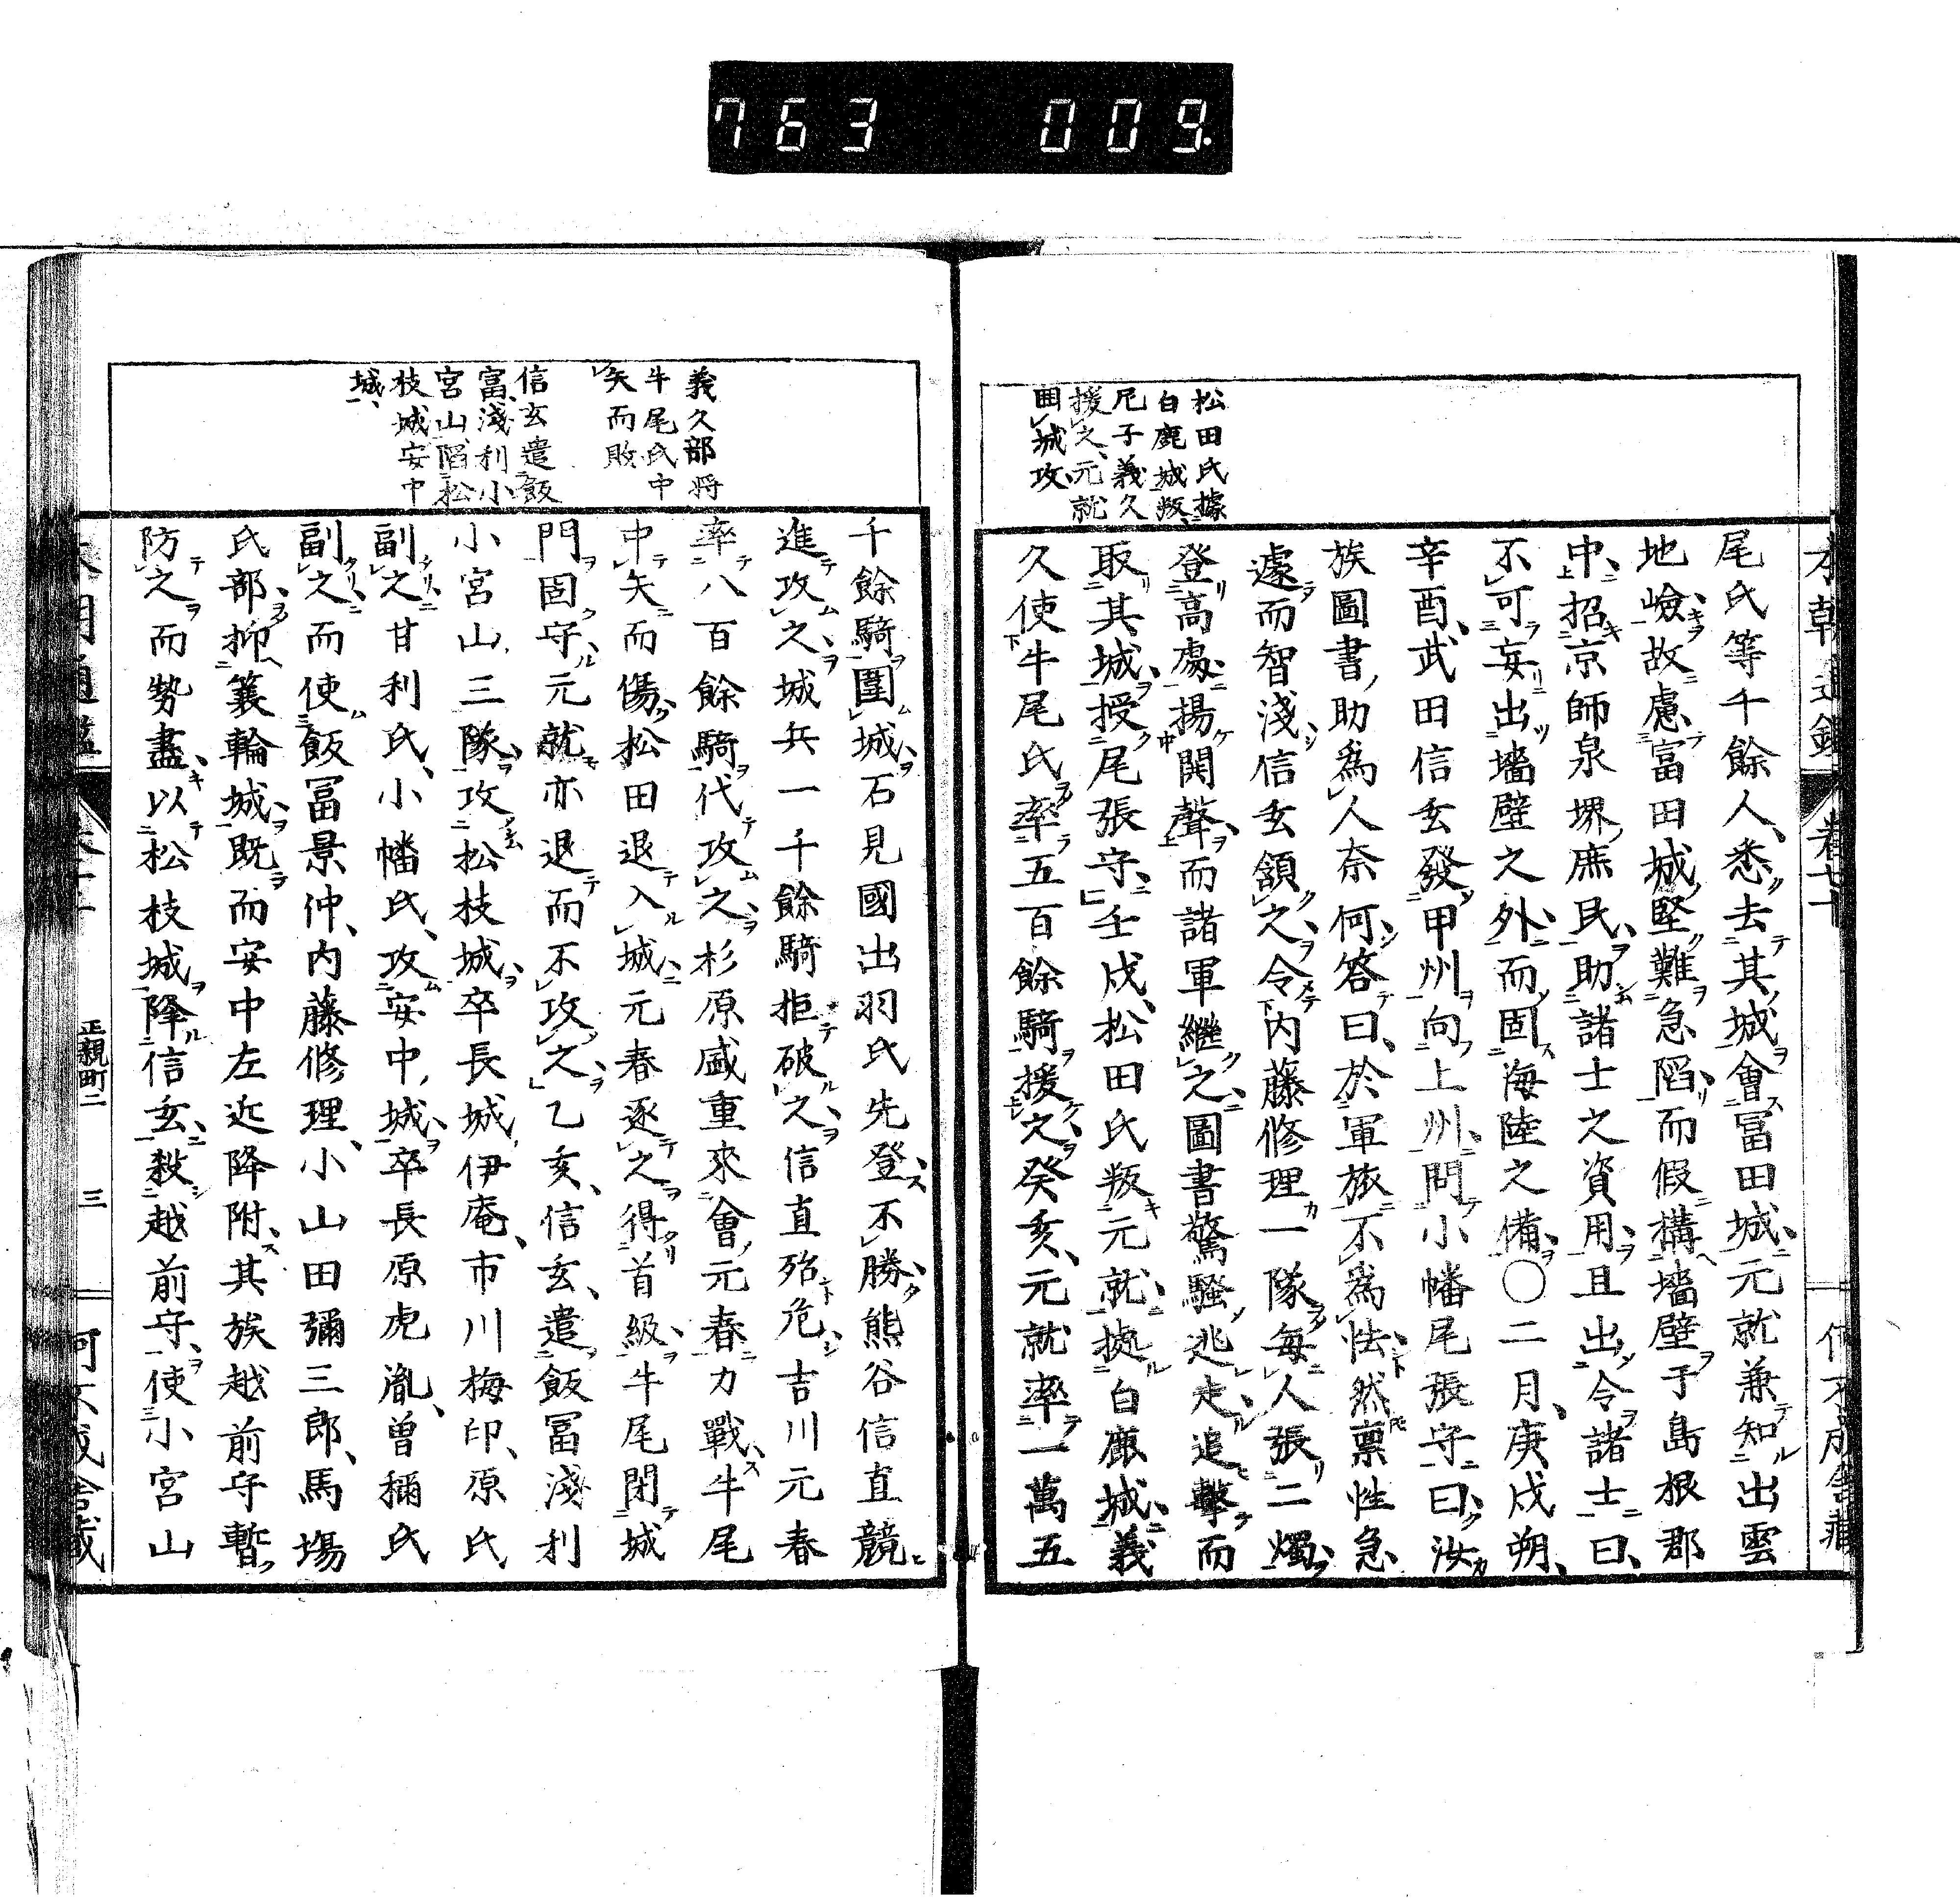 763 009.
松田氏據
白鹿城叛
尼子義久
援之、元就
囲城攻
尾氏等千餘人、悉去其城會富田城、元就兼知出雲
地嶮故慮富田城堅難急陷而假構墻壁于島根郡
中、招京師泉堺庶民助諸士之資用、且出令諸士曰、
不可妄出墻壁之外、而固海陸之備○二月、庚戌朔、
辛酉、武田信玄發甲州向上州、問小幡尾張守曰、汝
族圖書、助為人奈何、答曰、於軍旅不為怯然稟性急
遽而智淺、信玄頷之、令内藤修理一隊每人張二燭
登高處、揚鬨聲、而諸軍繼之、圖書驚騷逃走、追擊而
取其城、授尾張守、壬戌、松田氏叛元就、據白鹿城、義
久使牛尾氏率五百餘騎援之、癸亥、元就率一萬五
義久部将
牛尾氏中
矢而敗
信玄遣飯
富淺利小
宮山陷松
枝城安中
城
千餘騎圍城、石見國出羽氏先登、不勝、熊谷信直競
進攻之、城兵一千餘騎拒破之、信直殆危、吉川元春
率八百餘騎代攻之、杉原盛重來會元春力戰、牛尾
中矢而傷、松田退入城、元春逐之得首級、牛尾閉城
門固守、元就亦退而不攻之、乙亥、信玄、遣飯冨淺利
小宮山三隊攻松枝城、卒長城伊庵、市川梅印、原氏
副之、甘利氏、小幡氏、攻安中城、卒長原虎胤、曾禰氏
副之、而使飯冨景仲、内藤修理、小山田彌三郎、馬場
氏部抑簑輪城、既而安中左近降附、其族越前守暫
防之而勢盡、以松枝城降信玄、殺越前守、使小宮山
正親町二
三